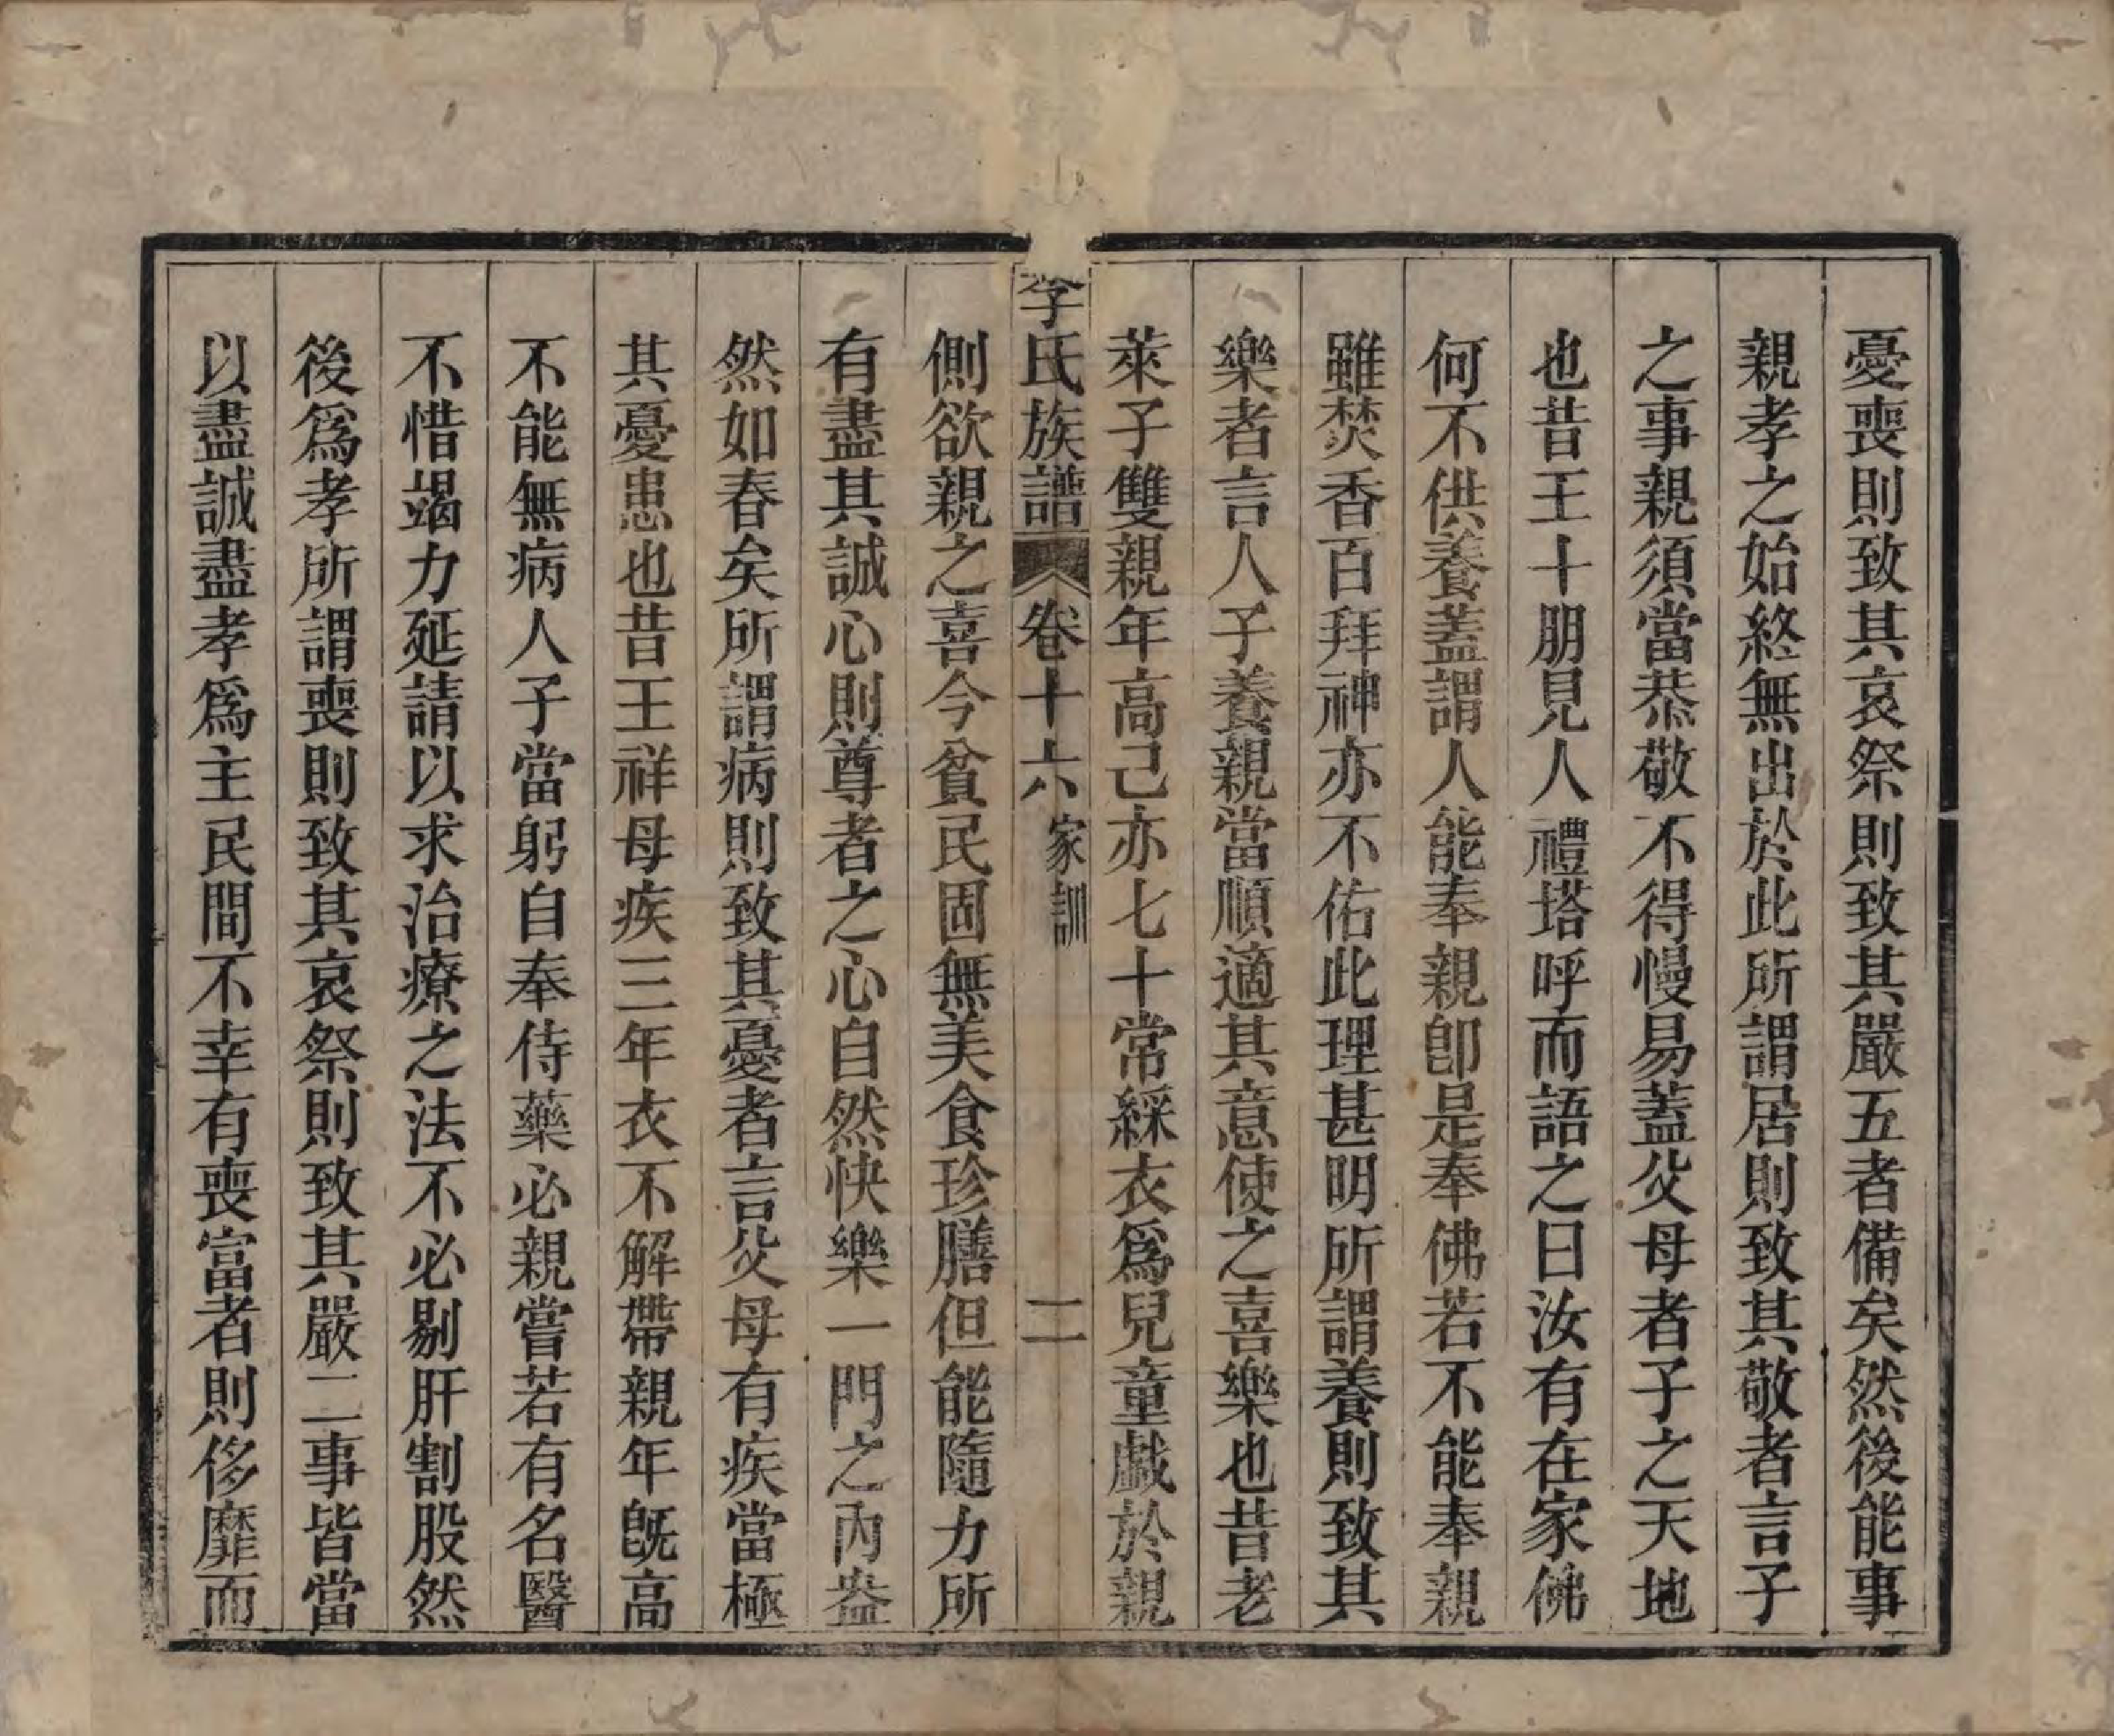 憂喪則致其哀祭則致其嚴五者備矣然後能事
親孝之始終無出於此所謂居則致其敬者言子
之事親須當恭敬不得慢易蓋父母者子之天地
也昔王十朋見人禮塔呼而語之曰汝有在家佛
何不供養蓋謂人能奉親卽是奉佛若不能奉親
雖焚香百拜神亦不佑此理甚明所謂養則致其
樂者言人子養親當順適其意使之喜樂也昔老
萊子雙親年高己亦七十常綵衣爲兒童戲於親
李氏族譜 卷十六 家訓 二
側欲親之喜今貧民固無美食珍膳但能隨力所
有盡其誠心則尊者之心自然快樂一門之內盎
然如春矣所謂病則致其憂者言父母有疾當極
其憂患也昔王祥母疾三年衣不解帶親年旣高
不能無病人子當躬自奉侍藥必親嘗若有名醫
不惜竭力延請以求治療之法不必剔肝割股然
後爲孝所謂喪則致其哀祭則致其嚴二事皆當
以盡誠盡孝爲主民間不幸有喪富者則侈靡而